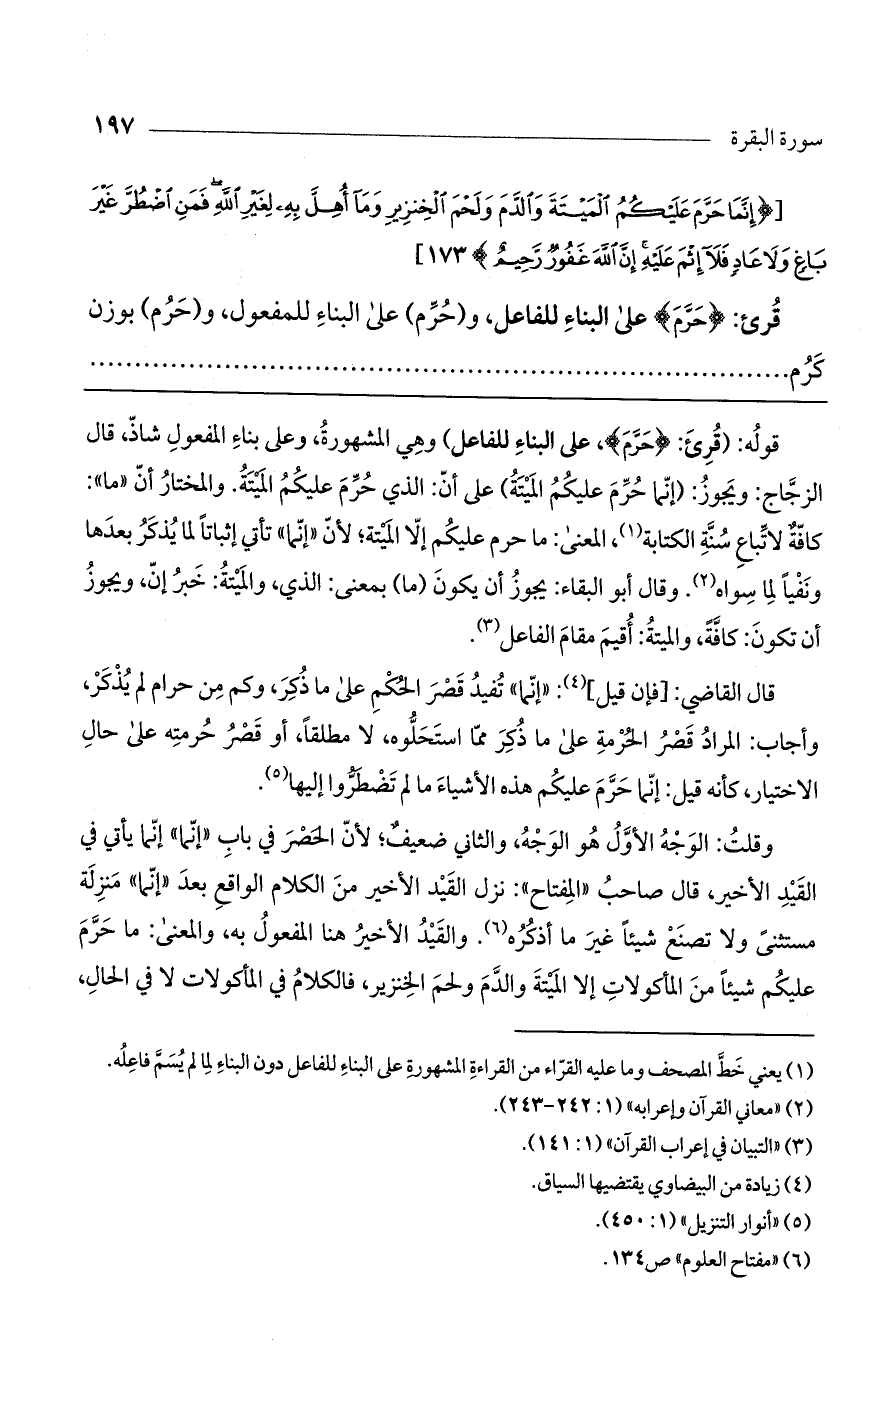 سورة البقرة ١٩٧
[﴿إِنَّمَا حَرَّمَ عَلَيْكُمُ ٱلْمَيْتَةَ وَٱلدَّمَ وَلَحْمَ ٱلْخِنزِيرِ وَمَآ أُهِلَّ بِهِۦ لِغَيْرِ ٱللَّهِ ۖ فَمَنِ ٱضْطُرَّ غَيْرَ
بَاغٍ وَلَا عَادٍ فَلَآ إِثْمَ عَلَيْهِ ۚ إِنَّ ٱللَّهَ غَفُورٌ رَّحِيمٌ﴾ ١٧٣]
قُرئ: ﴿حَرَّمَ﴾ علىٰ البناءِ للفاعل، و(حُرِّم) علىٰ البناءِ للمفعول، و(حَرُم) بوزن
كَرُم......................................................................
قولُه: (قُرِئَ: ﴿حَرَّمَ﴾، على البناءِ للفاعل) وهِي المشهورةُ، وعلى بناءِ المفعولِ شاذّ، قال
الزجَّاج: ويَجوزُ: (إنّما حُرِّمَ عليكُمُ المَيْتَةُ) على أنّ: الذي حُرِّمَ عليكُمُ المَيْتَةُ. والمختارُ أنّ «ما»:
كافّةٌ لاتِّباعِ سُنَّةِ الكتابة(١)، المعنىٰ: ما حرم عليكُم إلّا المَيْتة؛ لأنّ «إنّما» تأتي إثباتاً لما يُذكَرُ بعدَها
ونَفْياً لِما سِواه(٢). وقال أبو البقاء: يجوزُ أن يكونَ (ما) بمعنى: الذي، والمَيْتةُ: خَبرُ إنّ، ويجوزُ
أن تكونَ: كافَّةً، والميتةُ: أُقيمَ مقامَ الفاعل(٣).
قال القاضي: [فإن قيل](٤): «إنّما» تُفيدُ قَصْرَ الحُكْمِ علىٰ ما ذُكِرَ، وكم مِن حرام لم يُذْكَرْ،
وأجاب: المرادُ قَصْرُ الحُرْمةِ علىٰ ما ذُكِرَ ممّا استَحَلُّوه، لا مطلقاً، أو قَصْرُ حُرمتِه علىٰ حالِ
الاختيار، كأنه قيل: إنّما حَرَّمَ عليكُم هذه الأشياءَ ما لم تَضْطَرُّوا إليها(٥).
وقلتُ: الوَجْهُ الأوَّلُ هُو الوَجْهُ، والثاني ضعيفٌ؛ لأنّ الحَصْرَ في بابِ «إنّما» إنّما يأتي في
القَيْدِ الأخير، قال صاحبُ «المِفتاح»: نزل القَيْد الأخير منَ الكلام الواقعِ بعدَ «إنّما» مَنزِلَة
مستثنىً ولا تصنَعْ شيئاً غيرَ ما أذكُرُه(٦). والقَيْدُ الأخيرُ هنا المفعولُ به، والمعنىٰ: ما حَرَّمَ
عليكُم شيئاً منَ المأكولاتِ إلا المَيْتَةَ والدَّمَ ولحمَ الخِنزير، فالكلامُ في المأكولات لا في الحالِ،
(١) يعني خَطَّ المصحف وما عليه القرّاء من القراءةِ المشهورةِ على البناءِ للفاعل دون البناءِ لِما لم يُسَمَّ فاعِلُه.
(٢) «معاني القرآن وإعرابه» (١: ٢٤٢-٢٤٣).
(٣) «التبيان في إعراب القرآن» (١: ١٤١).
(٤) زيادة من البيضاوي يقتضيها السياق.
(٥) «أنوار التنزيل» (١: ٤٥٠).
(٦) «مفتاح العلوم» ص١٣٤.